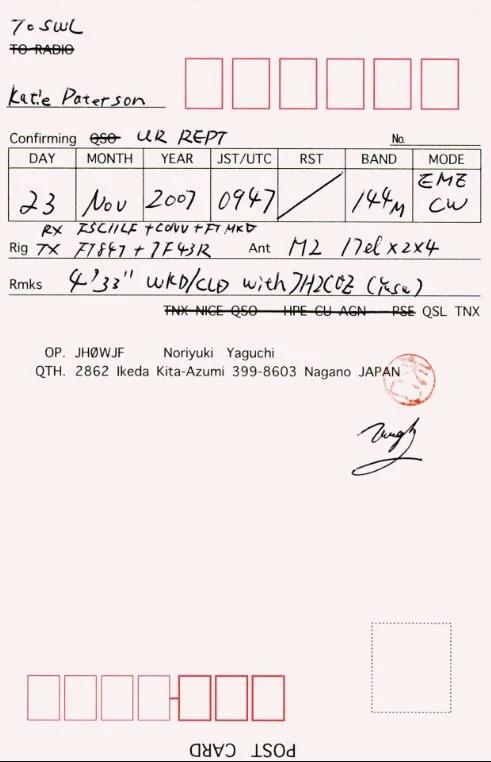 To SWL
TO RADIO
Katie Paterson
Confirming QSO UR REPT No.
DAY MONTH YEAR JST/UTC RST BAND MODE
23 Nov 2007 0947 / 144M EME CW
RX +CONV+
Rig TX FT847 + Ant M2 17el x2x4
Rmks 4'33" WKD/CLD with
TNX NICE QSO HPE CU AGN PSE QSL TNX
OP. JHØWJF Noriyuki Yaguchi
QTH. 2862 Ikeda Kita-Azumi 399-8603 Nagano JAPAN
POST CARD